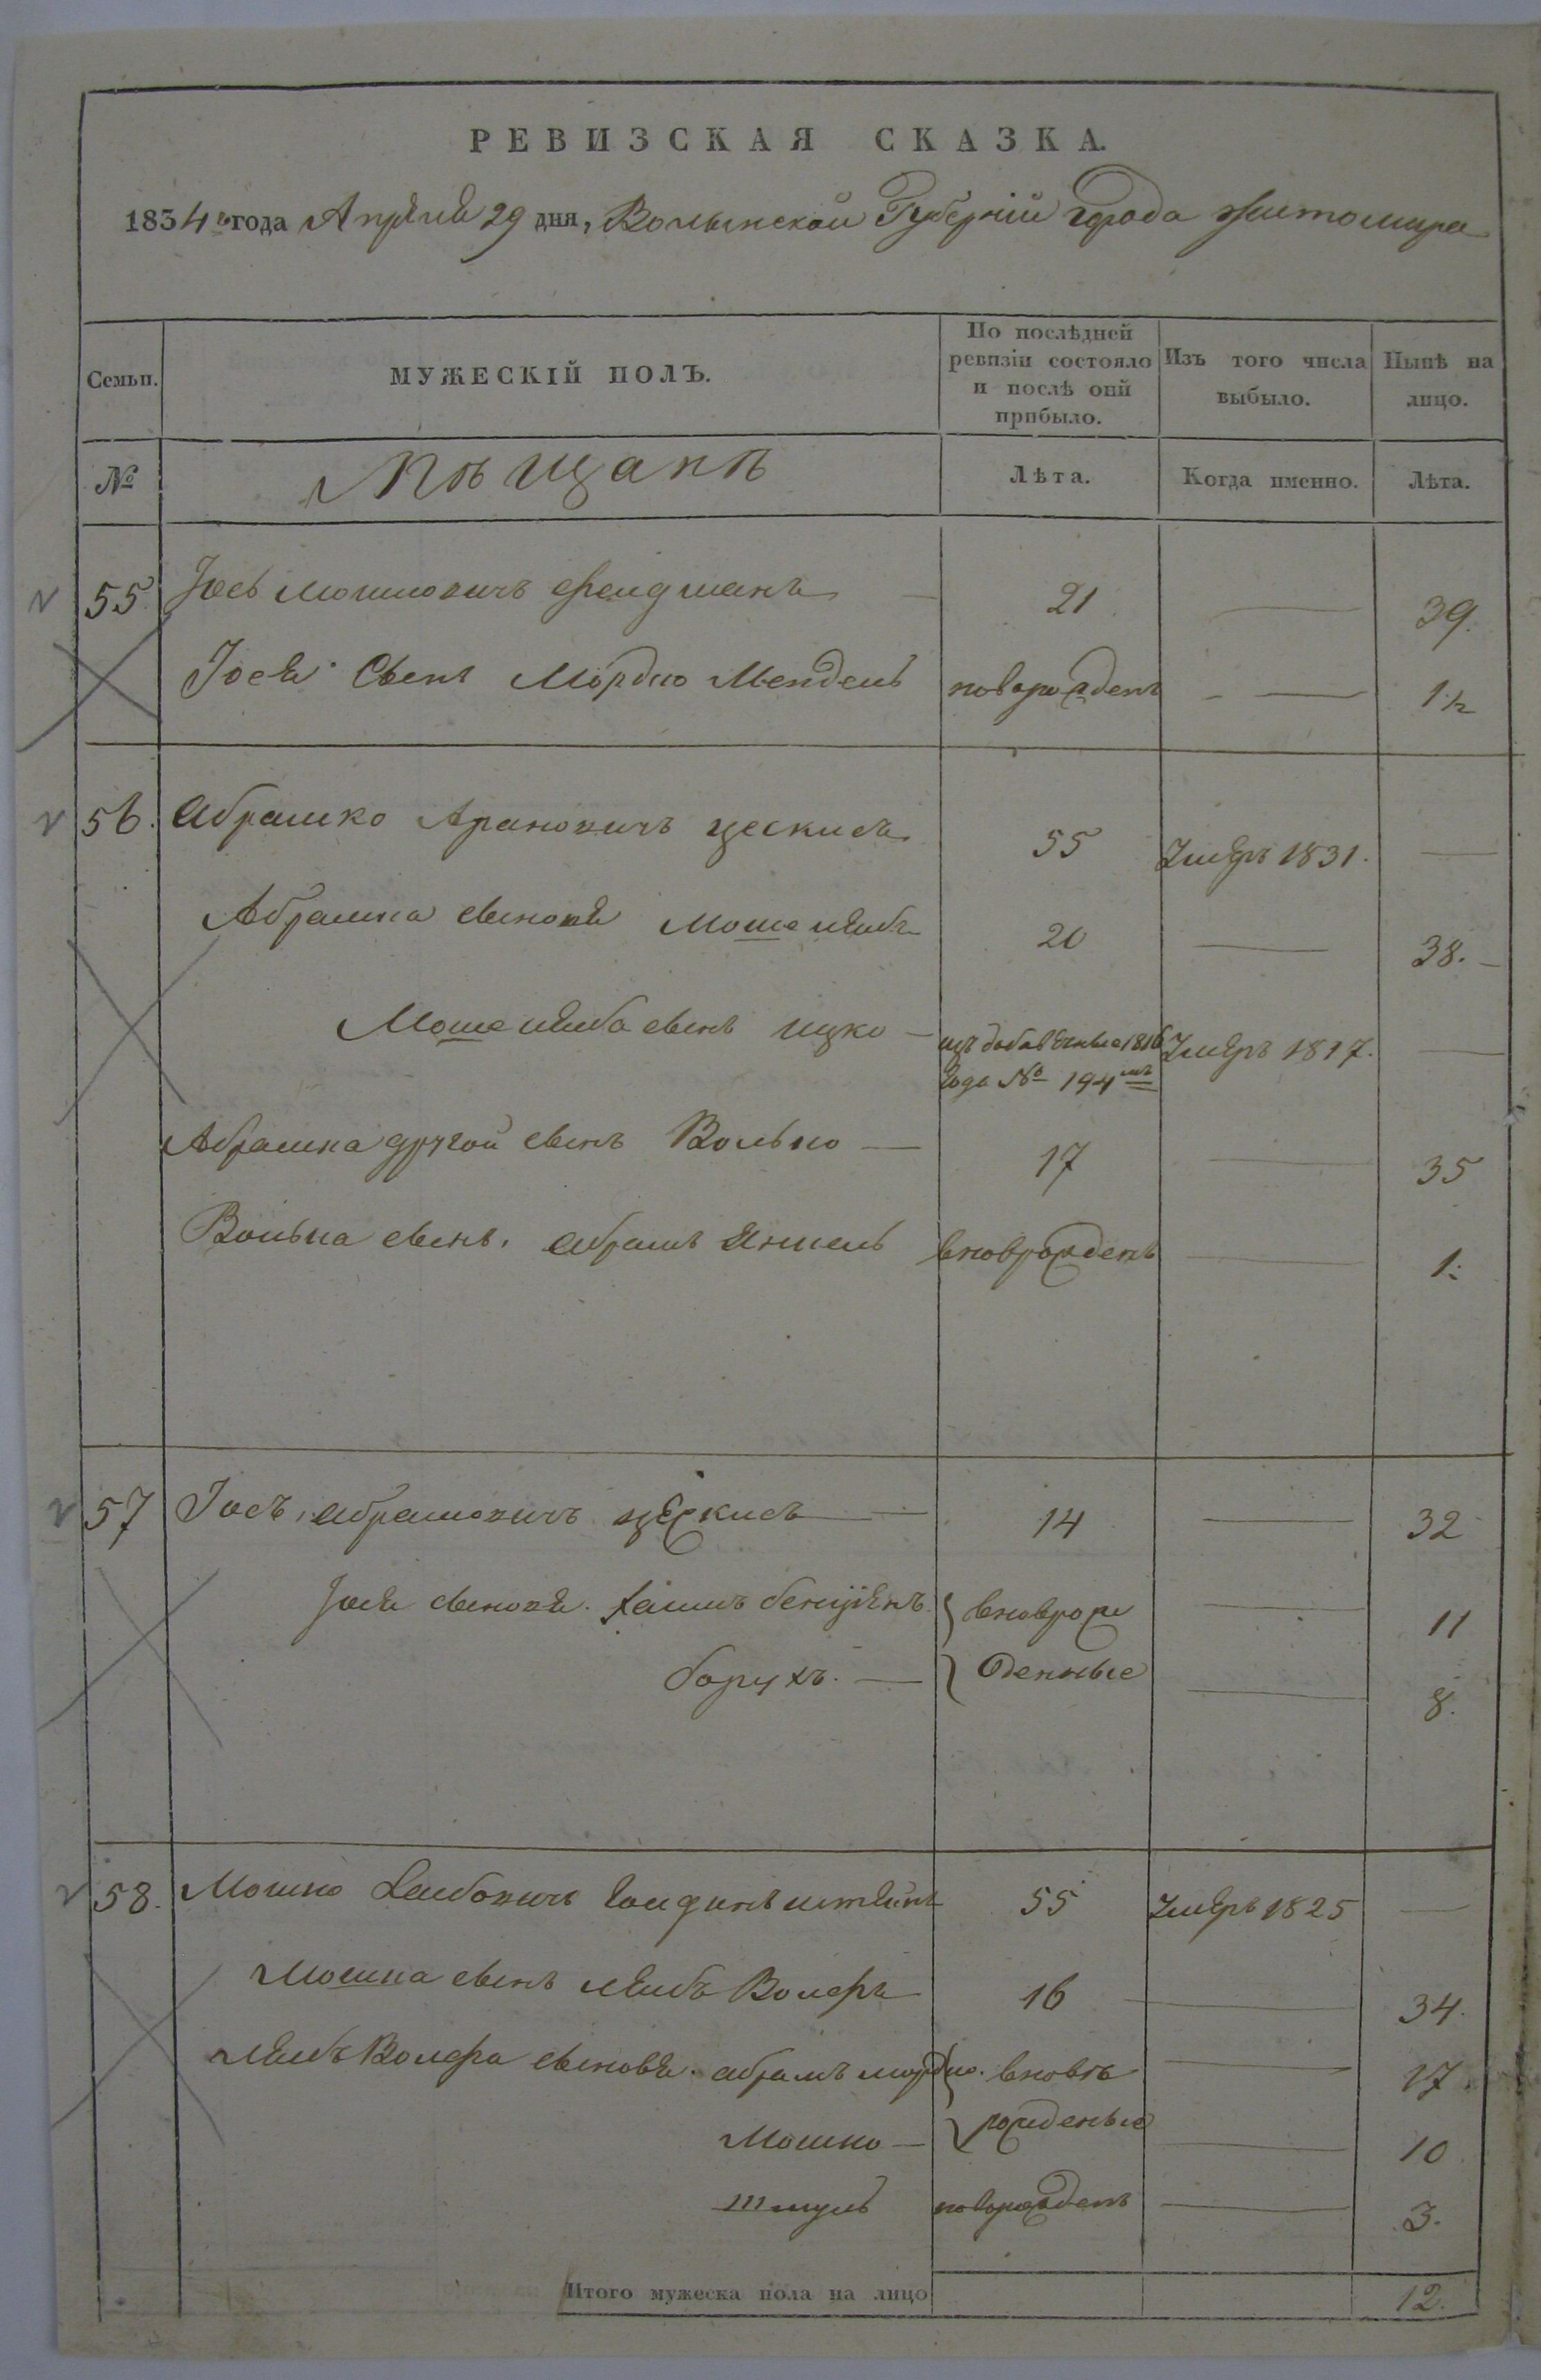 РЕВИЗСКАЯ СКАЗКА.
1834 года Апреля 29 дня, Волынской Губерніи Города Житомира
Семьи.
МУЖЕСКІЙ ПОЛЪ.
По послѣдней ревизіи состояло и послѣ оній прибыло.
Изъ того числа выбыло.
Нынѣ на лицо.
№
Мѣщанѣ
Лѣта.
Когда именно.
Лѣта.
55 Іось Мошковичъ Фелдманъ — 21 — 39.
Іося Сынъ Мордко Мендель новорожденъ — 1½
56. Абрамко Арановичъ Цескисъ 55 Умеръ 1831. —
Абрамка сыновя Моше Леибъ 20 — 38. —
Моше Леиба сынъ Ицко — изъ добавочные 1816 года № 194 Умеръ 1817. —
Абрамка другой сынъ Волько — 17 — 35
Волька сынъ. Абрамъ Янкель вноврожденъ — 1.
57 Іосъ Абрамовичъ Цескисъ — 14 — 32
Іося сыновя. Хаимъ Бенціенъ. } вноврож — 11
Борухъ. — } денные — 8.
58. Мошко Леибовичъ Голдинштеинъ 55 Умеръ 1825 —
Мошка сынъ Леибъ Волфъ 16 — 34.
Леибъ Волфа сыновя. Абрамъ Мордко. } вновъ — 17.
Мошко — } рожденые — 10
Шмуль новорожденъ — 3.
Итого мужеска пола на лицо 12.